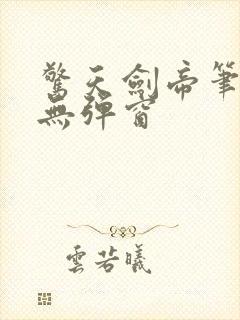 驚天劍帝筆
無彈窗
雲若曦